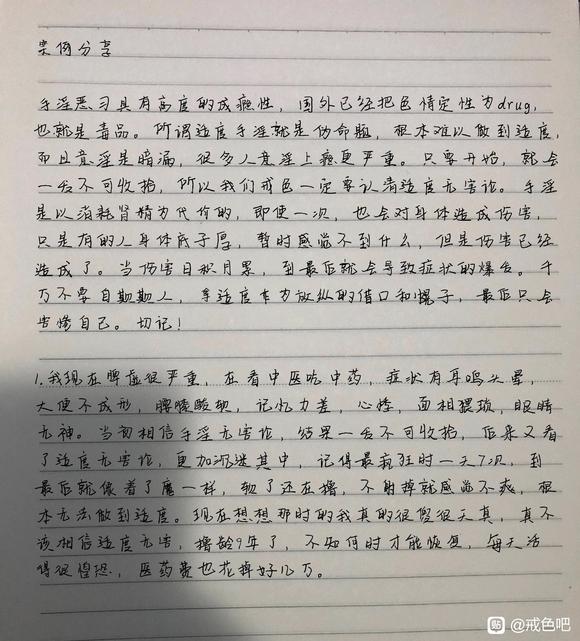 案例分享
手淫恶习具有高度的成瘾性，国外已经把色情定性为drug，
也就是毒品。所谓适度手淫就是伪命题，根本难以做到适度，
而且意淫是暗漏，很多人意淫上瘾更严重。只要开始，就会
一发不可收拾，所以我们戒色一定要认清适度无害论。手淫
是以消耗肾精为代价的，即使一次，也会对身体造成伤害，
只是有的人身体底子厚，暂时感觉不到什么，但是伤害已经
造成了。当伤害日积月累，到最后就会导致症状的爆发。千
万不要自欺欺人，拿适度来为放纵的借口和幌子，最后只会
害惨自己。切记！
1.我现在脾虚很严重，在看中医吃中药，症状有耳鸣头晕，
大便不成形，腰膝酸软，记忆力差，心悸，面相猥琐，眼睛
无神。当初相信手淫无害论，结果一发不可收拾，后来又看
了适度无害论，更加沉迷其中，记得最疯狂时一天7次，到
最后就像着了魔一样，软了还在撸，不射掉就感觉不爽，根
本无法做到适度。现在想想那时的我真的很傻很天真，真不
该相信适度无害，撸龄9年了，不知何时才能恢复，每天活
得很惶恐，医药费也花掉好几万。
贴 @戒色吧